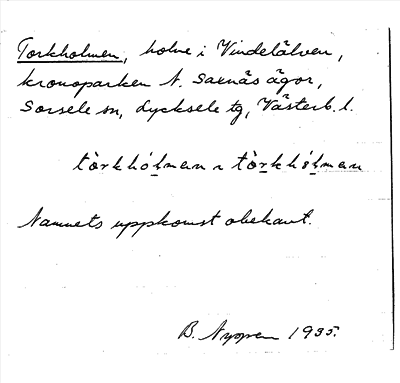 Torkholmen, holme i Vindelälven,
kronoparken N. Saxnäs ägor,
Sorsele sn, Lycksele tg, Västerb. l.
tòrkhólman ~ tòrkhólman
Namnets uppkomst obekant.
B. 1935.